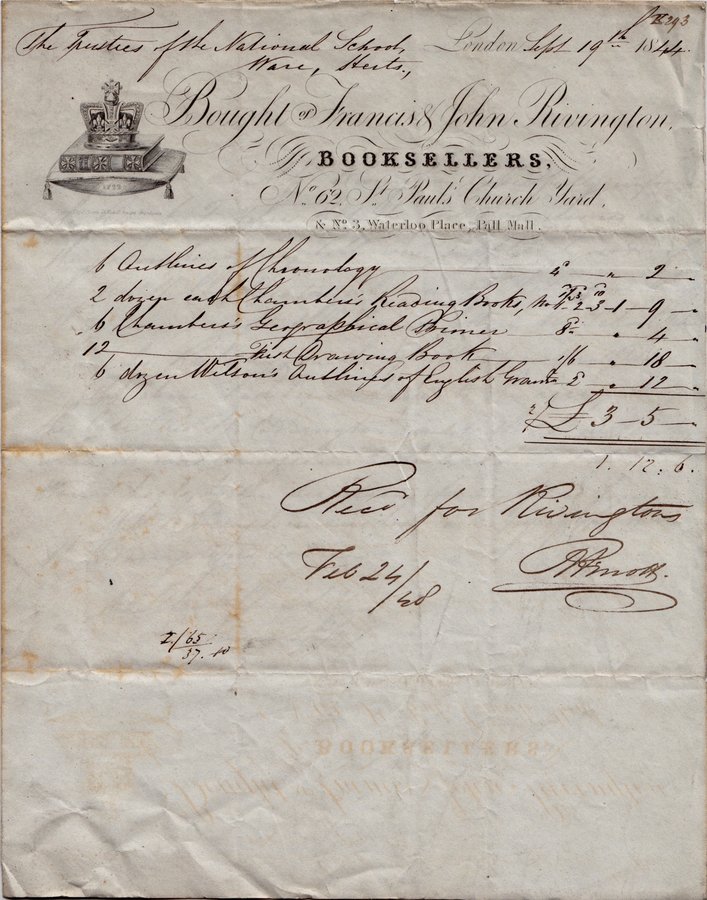 The Trustees of the National School, London Sept 19th 1844
Ware, Herts.,
Bought of Francis & John Rivington,
BOOKSELLERS,
No. 62, St. Paul's Church Yard,
& No. 3, Waterloo Place, Pall Mall.
6 Outlines of Chronology 4d " 2 "
2 dozen each Chambers's Reading Books, No 1-2-3-1-9 "
6 Chambers's Geographical Primer 8d " 4 "
12 First Drawing Book 1/6 " 18 "
6 dozen Wilson's Outlines of English Gram " 12 "
£ 3-5-"
1. 12. 6.
Recd for Rivingtons
Feb 24/48
2/65